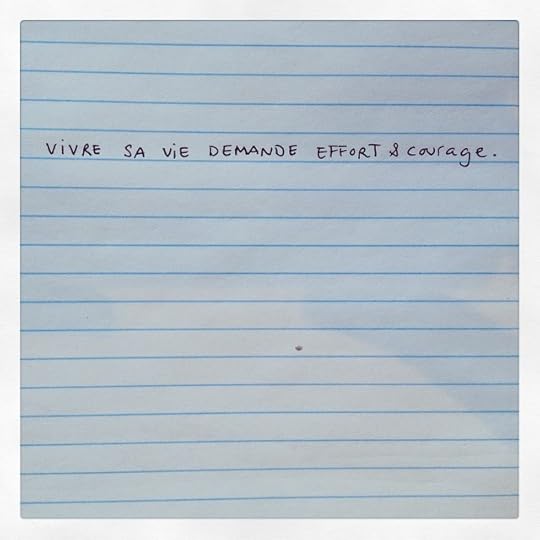 ViVRE SA ViE DEMANDE EFFORT & courage.